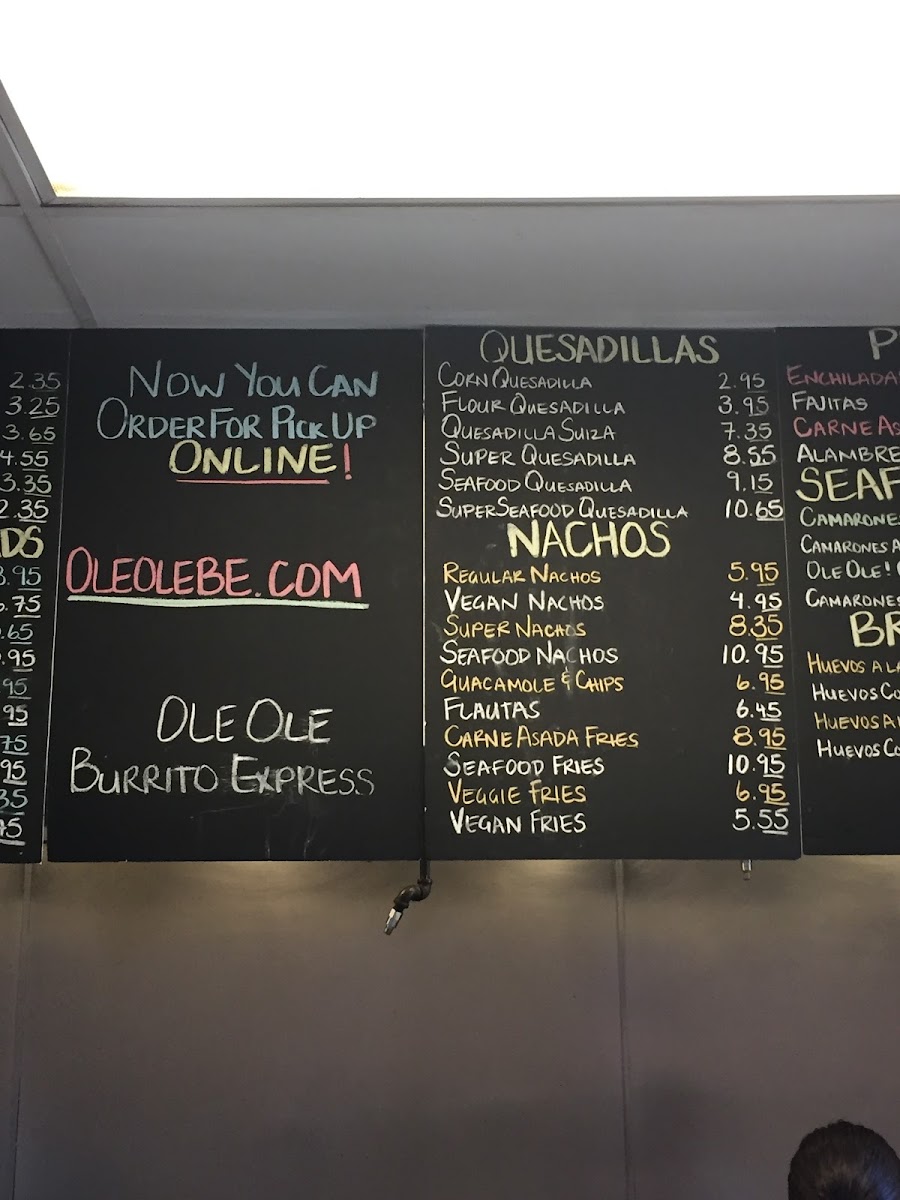 2.35
3.25
3.65
4.55
3.35
2.35
.95
.75
.65
.95
95
95
75
95
35
NOW YOU CAN
ORDER FOR PICK UP
ONLINE!
OLEOLEBE.COM
OLE OLE
BURRITO EXPRESS
QUESADILLAS
CORN QUESADILLA 2.95
FLOUR QUESADILLA 3.95
QUESADILLA SUIZA 7.35
SUPER QUESADILLA 8.55
SEAFOOD QUESADILLA 9.15
SUPER SEAFOOD QUESADILLA 10.65
NACHOS
REGULAR NACHOS 5.95
VEGAN NACHOS 4.95
SUPER NACHOS 8.35
SEAFOOD NACHOS 10.95
GUACAMOLE & CHIPS 6.95
FLAUTAS 6.45
CARNE ASADA FRIES 8.95
SEAFOOD FRIES 10.95
VEGGIE FRIES 6.95
VEGAN FRIES 5.55
P
ENCHILADA
FAJITAS
CARNE AS
ALAMBRE
SEAF
CAMARONES
CAMARONES A
OLE OLE!
CAMARONES
BR
HUEVOS A LA
HUEVOS CO
HUEVOS A
HUEVOS CO